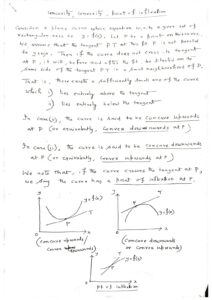 Concavity, convexity, point of inflection
Consider a plane curve whose equation w.r.to a given set of
rectangular axes is y = f(x). Let P be a point on the curve.
We assume that the tangent PT at this pt. P is not parallel
to y-axis. Then if the curve does not cross its tangent
at P, it will, before and after the pt. be situated on the
same side of the tangent PT in a small neighbourhood of P.
That is, there exists a sufficiently small arc of the curve
which i) lies entirely above the tangent
or ii) lies entirely below the tangent
In case (i), the curve is said to be concave upwards
at P (or equivalently, convex downwards at P).
In case (ii), the curve is said to be concave downwards
at P (or equivalently, convex upwards at P).
We note that, if the curve crosses the tangent at P,
we say the curve has a point of inflection at P.
y
y=f(x)
T
P
x
(Concave upwards /
Convex downwards)
y
T
P
y=f(x)
x
(Concave downwards
or convex upwards)
y
T
P
x
pt. of inflection